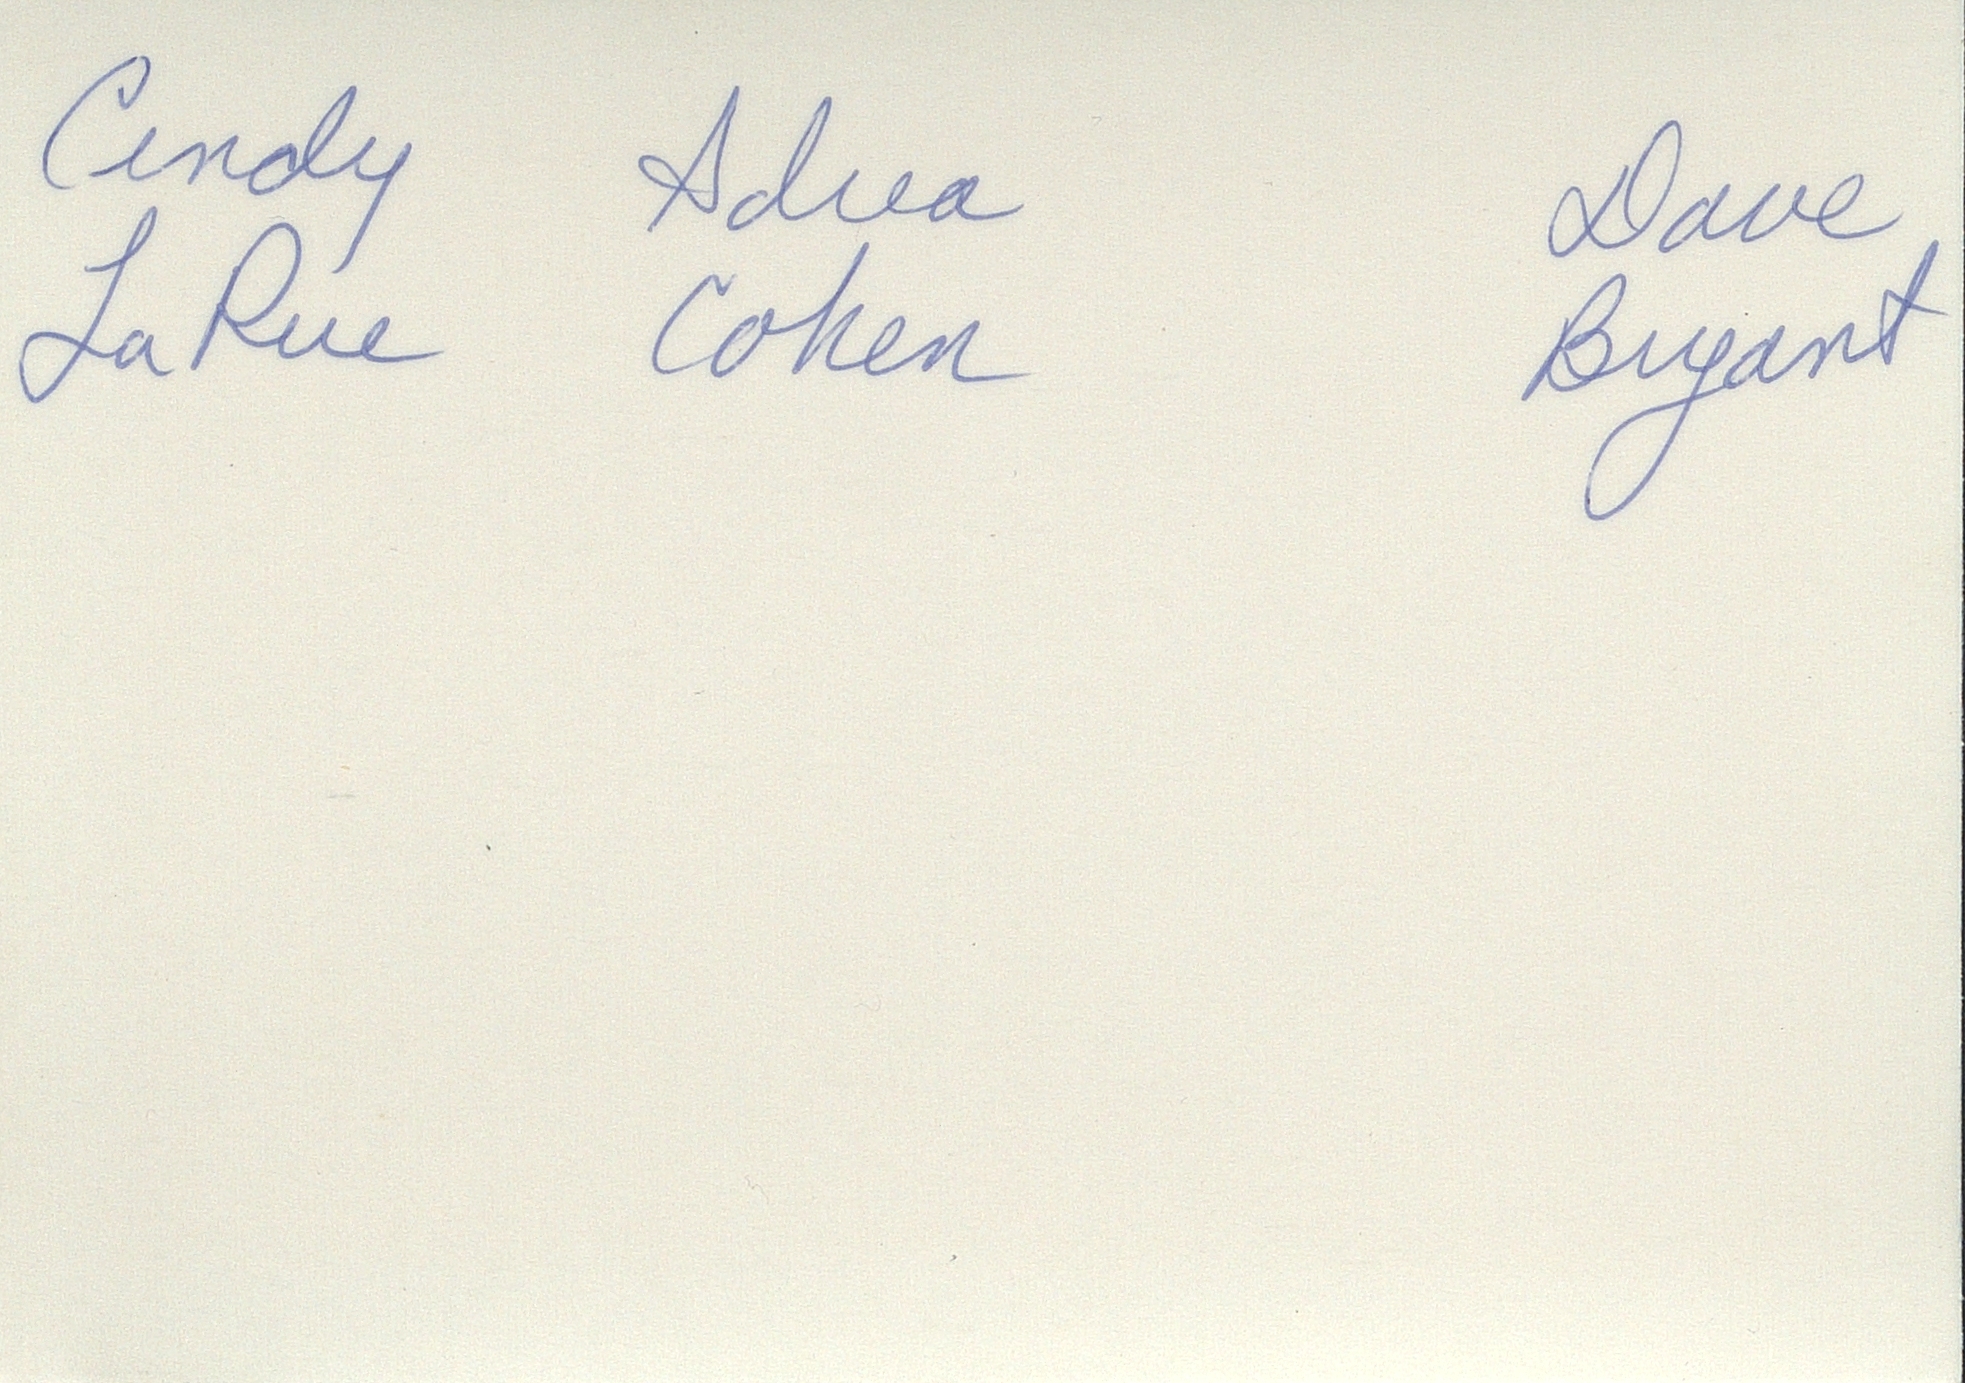 Cindy
LaRue
Adrea
Cohen
Dave
Bryant